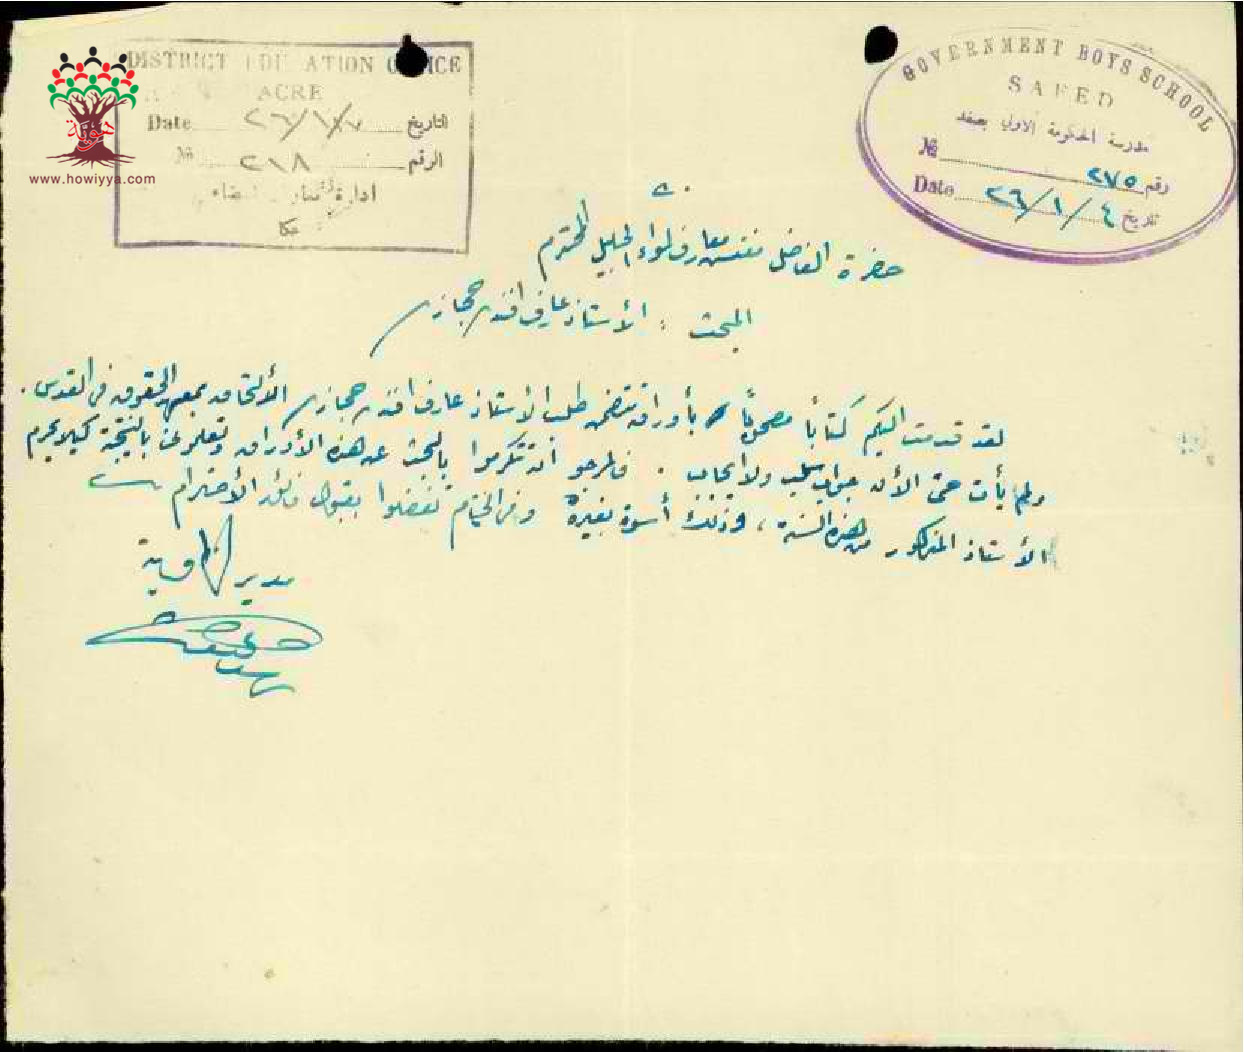 DISTRICT EDUCATION OFFICE
ACRE
Date ٢٦/١/٧ التاريخ
№ ٢١٨ الرقم
ادارة
عكا
هوية
www.howiyya.com
GOVERNMENT BOYS SCHOOL
SAFED
مدرسة الحكومة الاولى بصفد
№ ٢٧٥ رقم
Date ٢٦/١/٤ تاريخ
حضرة الفاضل مفتش معارف لواء الجليل المحترم
المبحث : الأستاذ عارف افندي حجازي
لقد قدمت اليكم كتاباً مصحوباً بأوراق تتضمن طلب الأستاذ عارف افندي حجازي الألتحاق بمعهد الحقوق في القدس .
ولم يأت حتى الآن جواب سلب ولا ايجاب . فالمرجو أن تتكرموا بالبحث عن هذه الأوراق وتعلمونا بالنتيجة كيلا يحرم
الأستاذ المذكور من هذه السنة ، وذلك أسوة بغيره وفي الختام تفضلوا بقبول فائق الأحترام
مدير